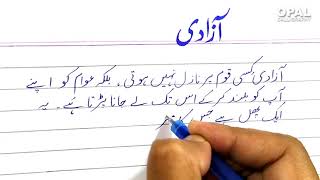 OPAL
آزادی
آزادی کسی قوم پر نازل نہیں ہوتی ، بلکہ عوام کو اپنے
آپ کو بلند کر کے اس تک لے جانا پڑتا ہے ۔ یہ
ایک پھل ہے جس